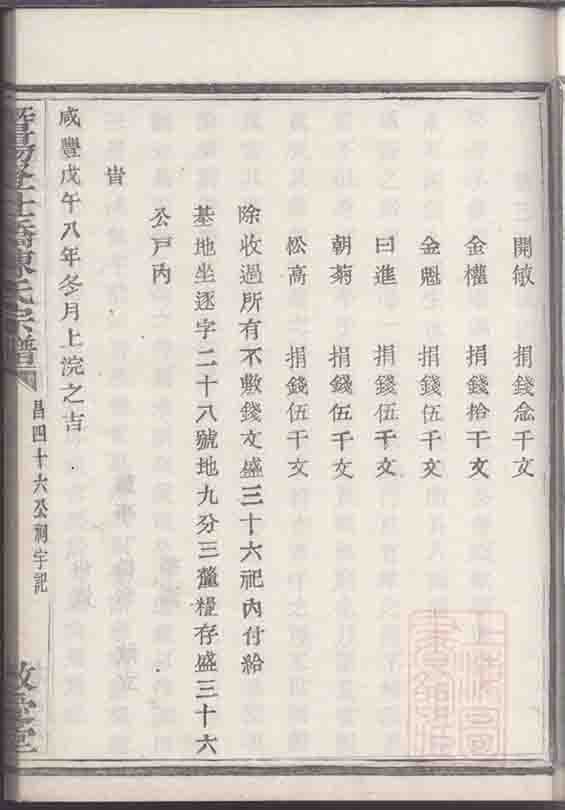 開敏 捐錢念千文
金權 捐錢拾千文
金魁 捐錢伍千文
曰進 捐錢伍千文
朝菊 捐錢伍千文
松高 捐錢伍千文
除收過所有不敷錢文盛三十六祀內付給
基地坐逐字二十八號地九分三釐糧存盛三十六
公戶內
旹
咸豐戊午八年冬月上浣之吉
陳氏宗譜
昌四十六公祠宇記